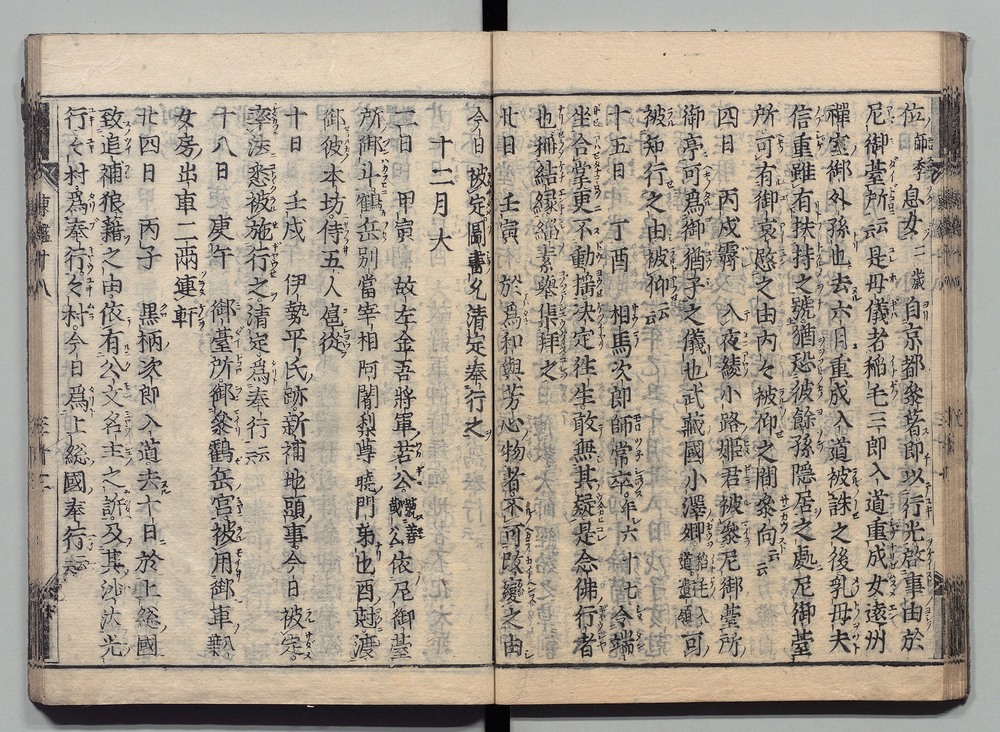 位師季息女二歳自京都參著即以行光啓事由於
尼御臺所云是母儀者稻毛三郎入道重成女遠州
禪室御外孫也去六月重成入道被誅之後乳母夫
信重雖有扶持之號猶恐彼餘殃隠居之處尼御臺
所可有御哀愍之由内々被仰之間參向云云
四日　丙戌霽　入夜綾小路姫君被參尼御臺所
御亭可為御猶子之儀也武藏國小澤郷稻毛入道遺領可
被知行之由被仰云云
十五日　丁酉　相馬次郎師常卒年六十七令端
坐合掌更不動揺決定往生敢無其疑是念佛行者
也稱結縁緇素擧集拜之
廿日　壬寅　於爲和與芳心物者不可改變之由
今日被定圖書允清定奉行之
十二月大
二日　甲寅　故左金吾將軍若公號善哉公依尼御臺
所御斗鶴岳別當宰相阿闍梨尊曉門弟也酉尅渡
御彼本坊侍五人扈從
十日　壬戌　伊勢平氏跡新補地頭事今日被定
率法悉被施行之清定爲奉行云云
十八日　庚午　御臺所御參鶴岳宮被用御車
女房出車二兩連軒
廿四日　丙子　黒柄次郎入道去十日於上総國
致追補狼藉之由依有久文名主之訴及其沙汰光
行々村爲奉行々村今日爲上総國奉行云云
東鑑十八